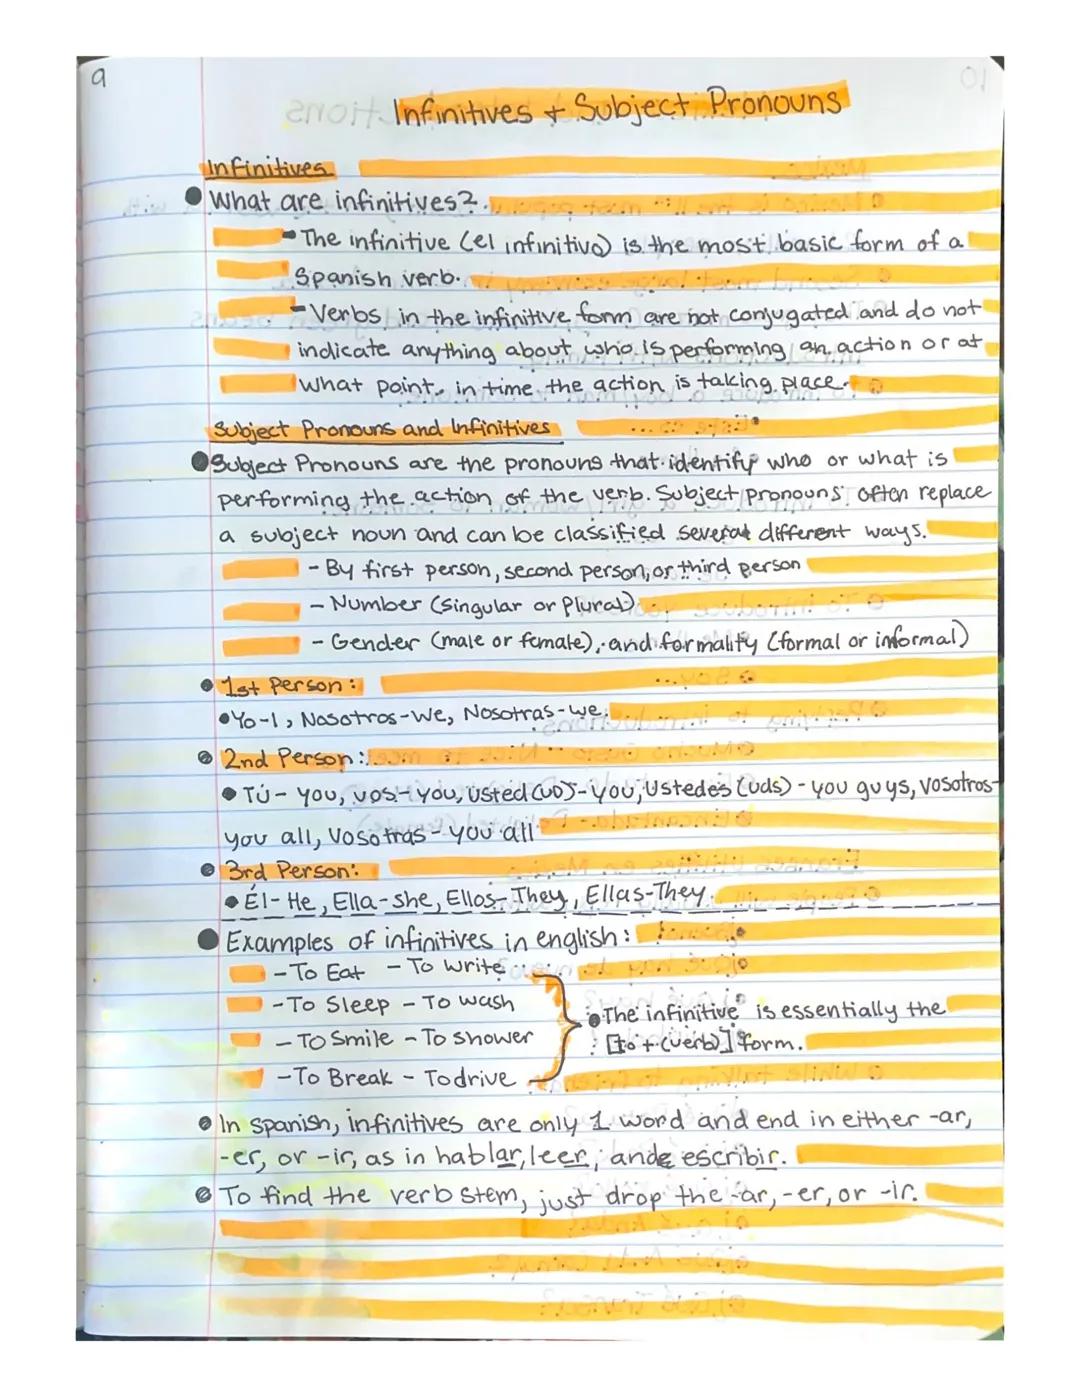 9
10
Infinitives + Subject Pronouns
Infinitives
What are infinitives?
- The infinitive (el infinitivo) is the most basic form of a
Spanish verb.
- Verbs in the infinitive form are not conjugated and do not
indicate anything about who is performing an action or at
what point in time the action is taking place.
Subject Pronouns and Infinitives
Subject Pronouns are the pronouns that identify who or what is
performing the action of the verb. Subject pronouns often replace
a subject noun and can be classified several different ways.
- By first person, second person, or third person
- Number (singular or plural)
- Gender (male or female), and formality (formal or informal)
1st Person:
Yo-I, Nosotros-we, Nosotras-we.
2nd Person:
Tú- you, vos- you, usted (UD)- you, Ustedes (uds) - you guys, vosotros-
you all, Vosotras - you all
3rd Person:
Él- He, Ella-she, Ellos- They, Ellas-They.
Examples of infinitives in english:
- To Eat - To write
- To Sleep - To wash
- To Smile - To shower
- To Break - To drive
The infinitive is essentially the
[to + (verb)] form.
In spanish, infinitives are only 1 word and end in either -ar,
-er, or -ir, as in hablar, leer, and escribir.
To find the verb stem, just drop the -ar, -er, or -ir.